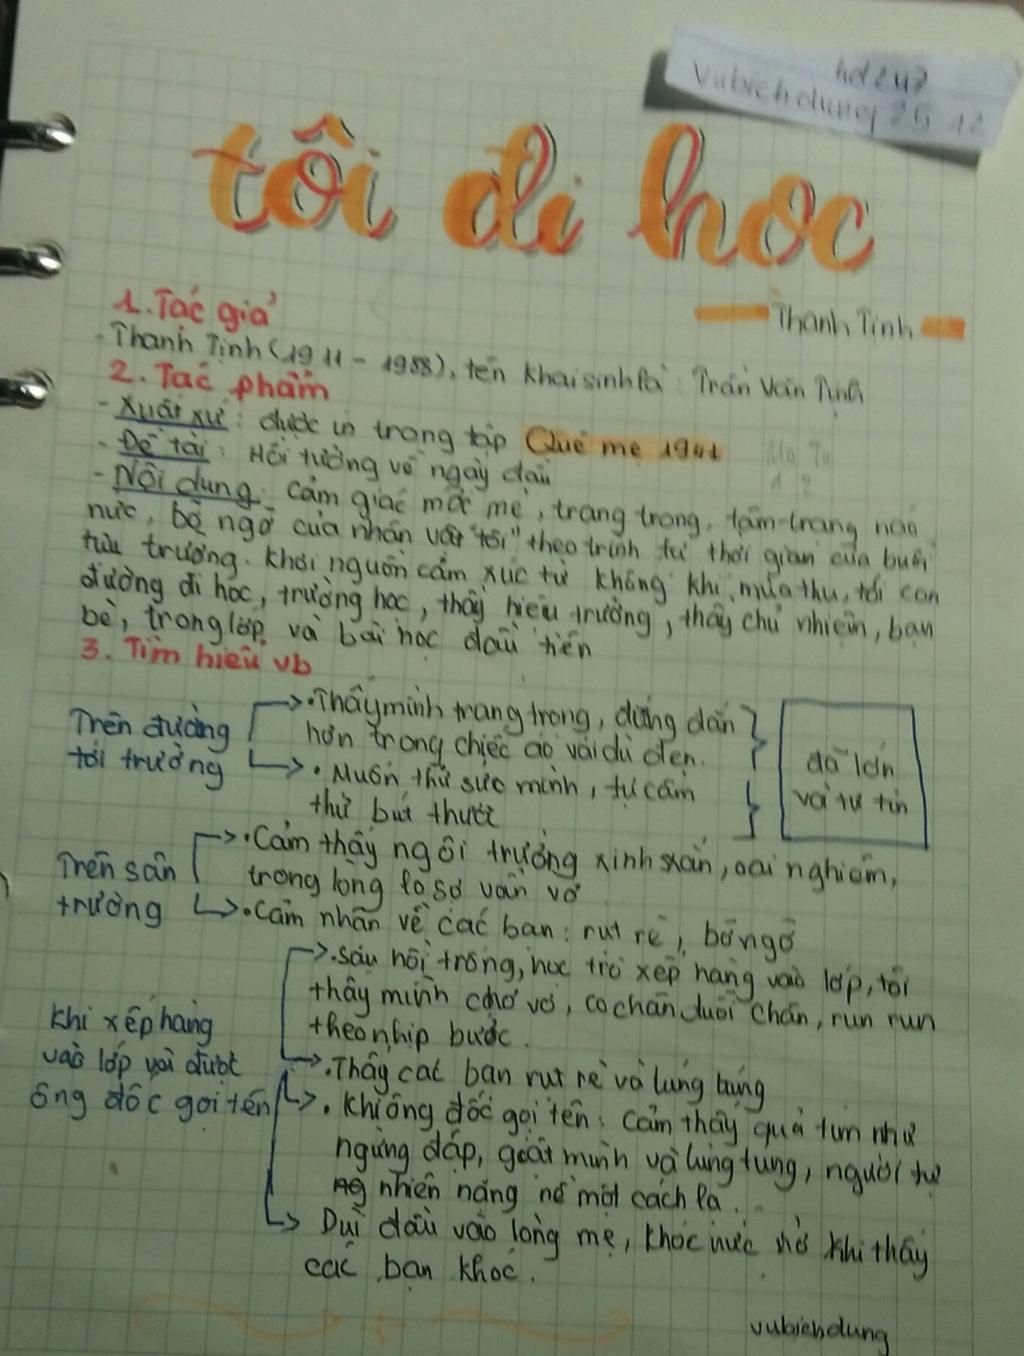 hot247
vubichdung 25 12
tôi đi học
Thanh Tịnh
1. Tác giả
- Thanh Tịnh (1911 - 1988), tên khai sinh là : Trần Văn Tịnh
2. Tác phẩm
- Xuất xứ : được in trong tập Quê mẹ 1941
- Đề tài : Hồi tưởng về ngày đầu
- Nội dung : Cảm giác mới mẻ, trang trọng, tâm trạng náo
nức, bỡ ngỡ của nhân vật "tôi" theo trình tự thời gian của buổi
tựu trường. Khơi nguồn cảm xúc từ không khí mùa thu, tới con
đường đi học, trường học, thầy hiệu trưởng, thầy chủ nhiệm, bạn
bè, trong lớp và bài học đầu tiên
3. Tìm hiểu vb
Trên đường
tới trường
• Thấy mình trang trọng, đứng đắn
hơn trong chiếc áo vải dù đen.
• Muốn thử sức mình, tự cầm
thử bút thước
đã lớn
và tự tin
Trên sân
trường
• Cảm thấy ngôi trường xinh xắn, oai nghiêm,
trong lòng lo sợ vẩn vơ
• Cảm nhận về các bạn : rụt rè, bỡ ngỡ
Khi xếp hàng
vào lớp và được
ông đốc gọi tên
• Sau hồi trống, học trò xếp hàng vào lớp, tôi
thấy mình chơ vơ, co chân duỗi chân, run run
theo nhịp bước.
• Thấy các bạn rụt rè và lúng túng
• Khi ông đốc gọi tên : Cảm thấy quả tim như
ngừng đập, giật mình và lúng túng, người tự
nhiên nặng nề một cách lạ.
Dúi đầu vào lòng mẹ, khóc nức nở khi thấy
các bạn khóc.
vubichdung